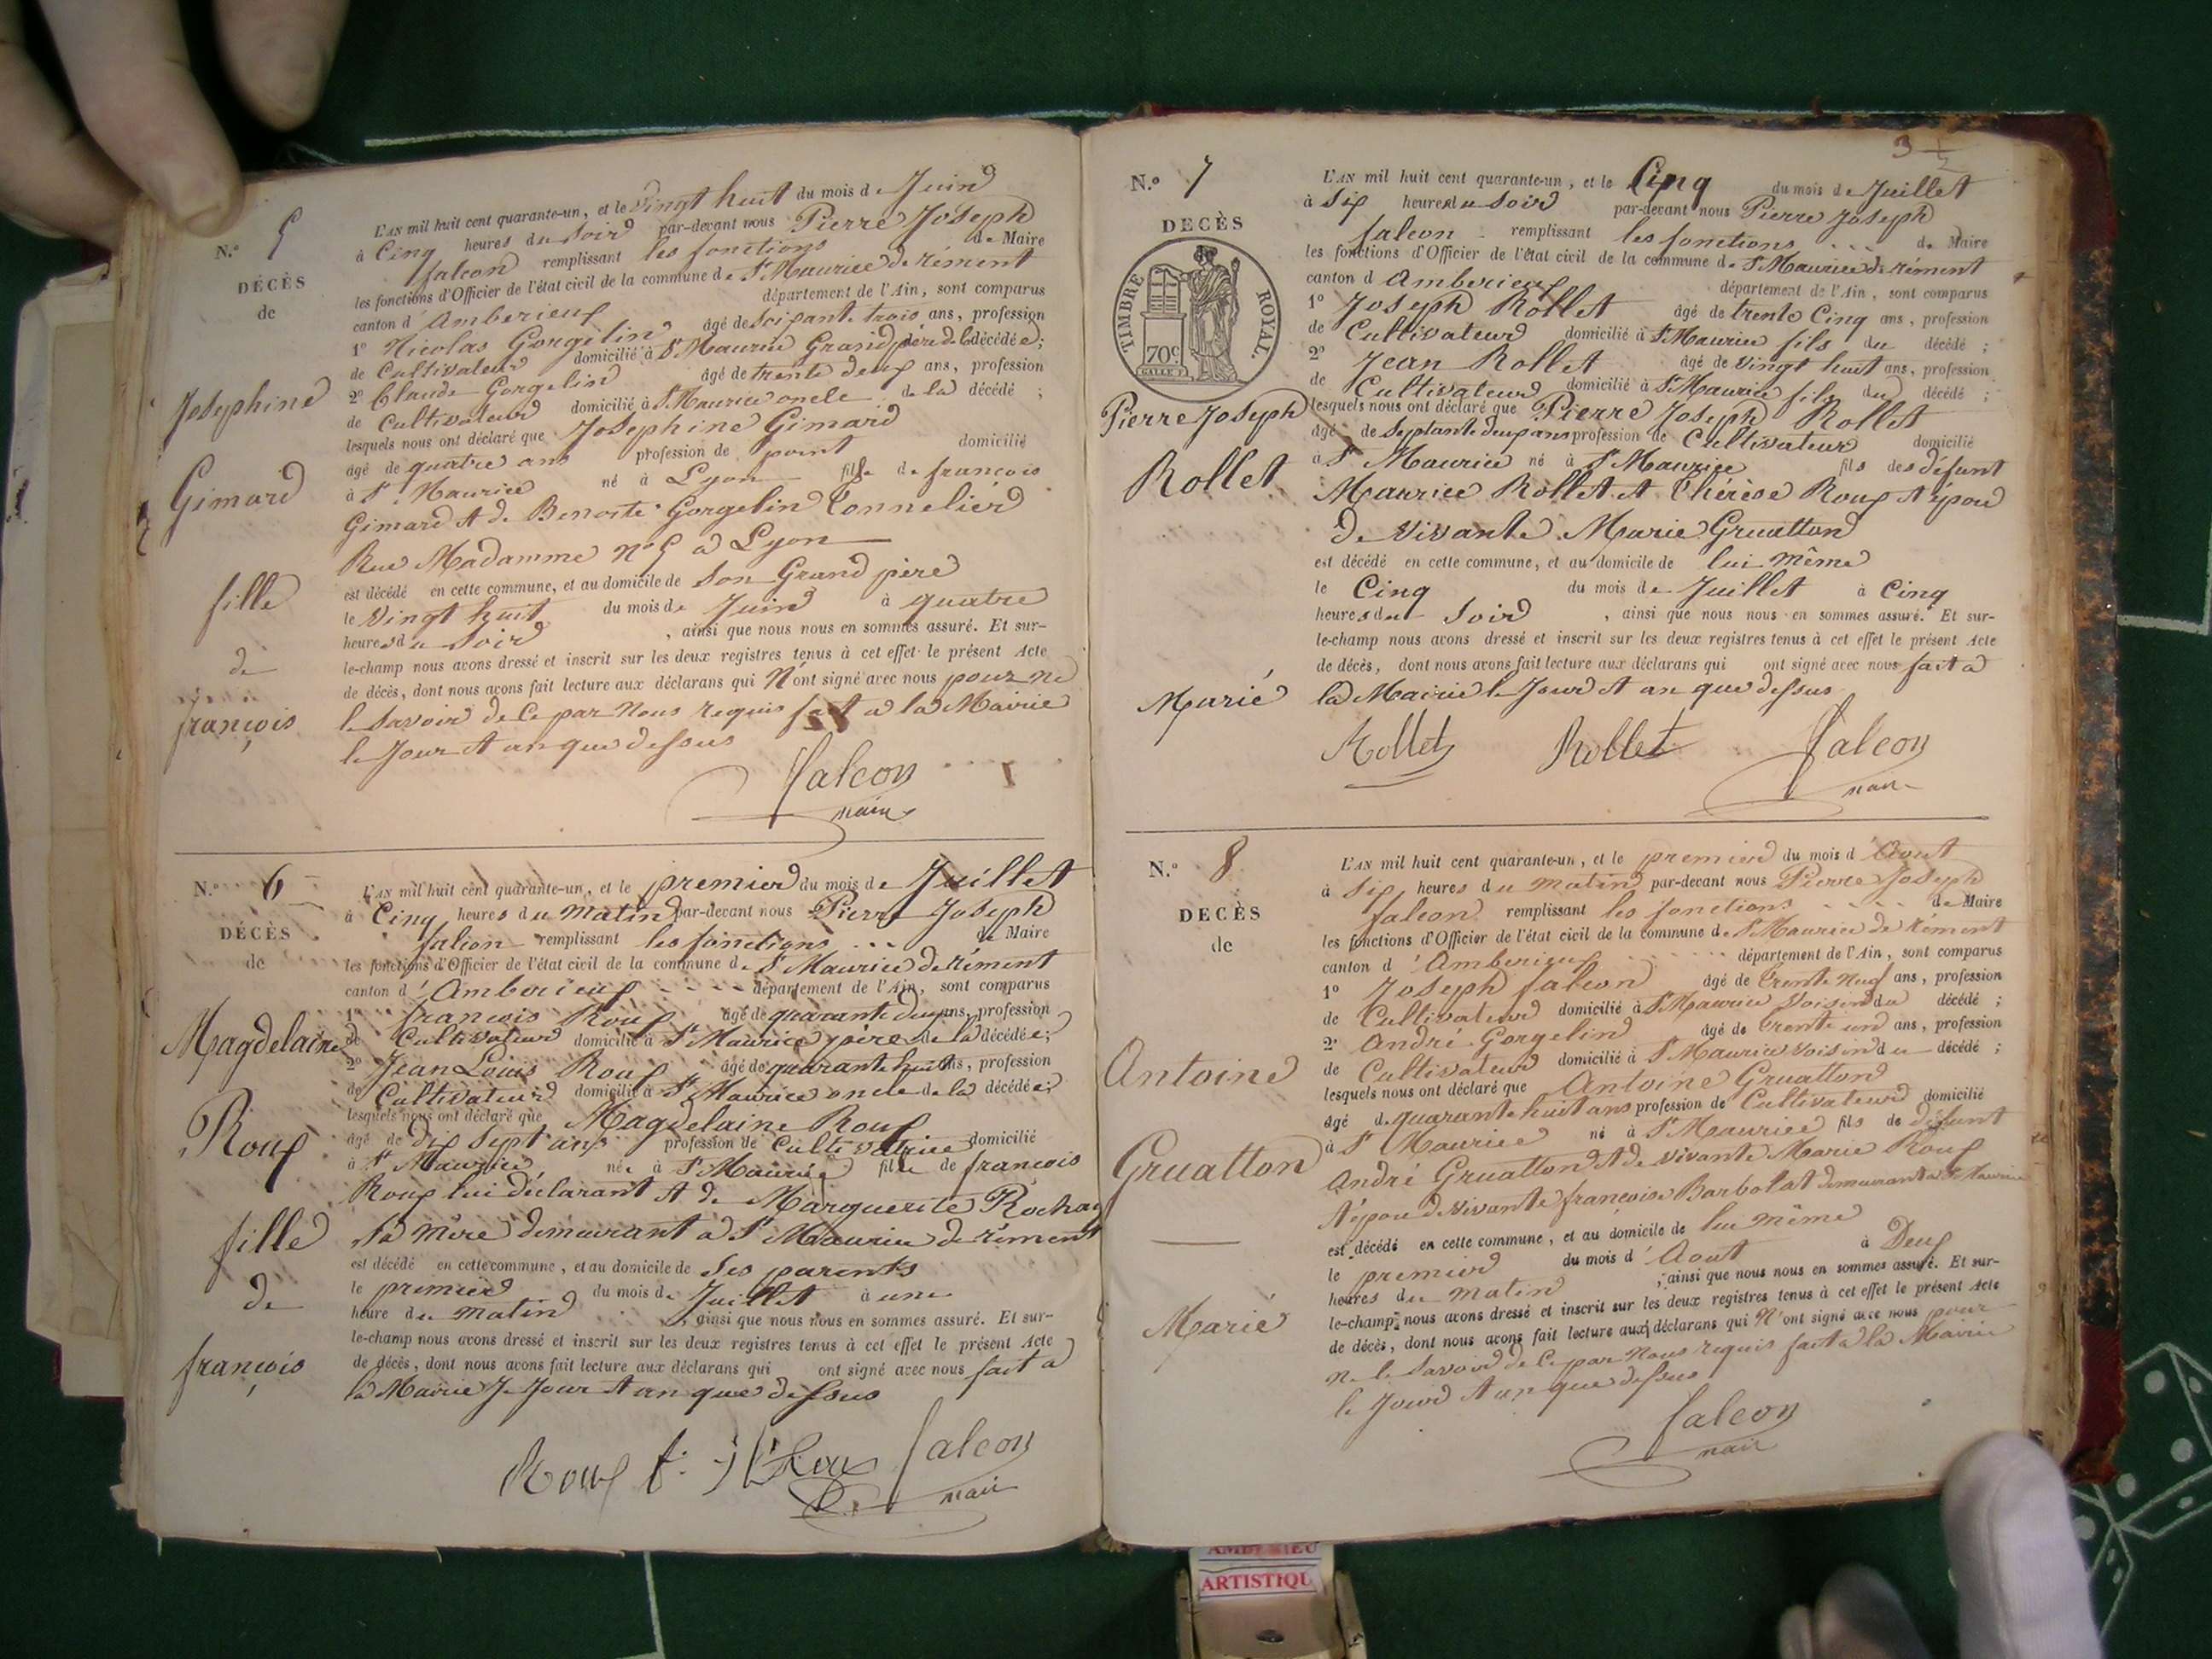 N.° 5
DÉCÈS
de
Josephine
Gimard
fille
de
françois
L'AN mil huit cent quarante-un, et le vingt huit du mois de Juin
à Cinq heures du soir par-devant nous Pierre Joseph
falcon remplissant les fonctions de Maire
les fonctions d'Officier de l'état civil de la commune de St Maurice de rément
canton d'Amberieux département de l'Ain, sont comparus
1° Nicolas Gorgelin âgé de Soixante trois ans, profession
de Cultivateur domicilié à St Maurice Grand père de la décédée;
2° Claude Gorgelin âgé de trente deux ans, profession
de Cultivateur domicilié à St Maurice oncle de la décédé ;
lesquels nous ont déclaré que Josephine Gimard
âgé de quatre ans profession de point domicilié
à St Maurice né à Lyon fille de françois
Gimard et de Benoite Gorgelin Tonnelier
Rue Madamme n° 5 a Lyon
est décédé en cette commune, et au domicile de Son Grand père
le vingt huit du mois de Juin à quatre
heures du soir , ainsi que nous nous en sommes assuré. Et sur-
le-champ nous avons dressé et inscrit sur les deux registres tenus à cet effet le présent Acte
de décès, dont nous avons fait lecture aux déclarans qui N'ont signé avec nous pour ne
le Savoir de Ce par Nous requis fait a la Mairie
le Jour et an que dessus
falcon
maire
N.° 6
DÉCÈS
de
Magdelaine
Roux
fille
de
françois
L'AN mil huit cent quarante-un, et le premier du mois de Juillet
à Cinq heures du matin par-devant nous Pierre Joseph
falcon remplissant les fonctions de Maire
les fonctions d'Officier de l'état civil de la commune de St Maurice de rément
canton d'Amberieux département de l'Ain, sont comparus
1° françois Roux âgé de quarante deux ans, profession
de Cultivateur domicilié à St Maurice père de la décédée;
2° Jean Louis Roux âgé de quarante huit ans, profession
de Cultivateur domicilié à St Maurice oncle de la décédée;
lesquels nous ont déclaré que Magdelaine Roux
âgé de dix Sept ans profession de Cultivatrice domicilié
à St Maurice née à St Maurice fille de françois
Roux lui déclarant et de Marguerite Rochas
Sa mère demeurant a St Maurice de rément
est décédé en cette commune, et au domicile de Ses parents
le premier du mois de Juillet à une
heure du matin , ainsi que nous nous en sommes assuré. Et sur-
le-champ nous avons dressé et inscrit sur les deux registres tenus à cet effet le présent Acte
de décès, dont nous avons fait lecture aux déclarans qui ont signé avec nous fait a
la Mairie le Jour et an que dessus
Roux f. falcon
maire
3
N.° 7
DECÈS
TIMBRE ROYAL.
70c
Pierre Joseph
Rollet
Marié
L'AN mil huit cent quarante-un, et le Cinq du mois de Juillet
à Six heures du soir par-devant nous Pierre Joseph
falcon remplissant les fonctions de Maire
les fonctions d'Officier de l'état civil de la commune de St Maurice de rément
canton d'Amberieux département de l'Ain, sont comparus
1° Joseph Rollet âgé de trente Cinq ans, profession
de Cultivateur domicilié à St Maurice fils du décédé ;
2° Jean Rollet âgé de vingt huit ans, profession
de Cultivateur domicilié à St Maurice fils du décédé ;
lesquels nous ont déclaré que Pierre Joseph Rollet
âgé de Septante deux ans profession de Cultivateur domicilié
à St Maurice né à St Maurice fils des défunt
Maurice Rollet et Thérèse Roux et épou
de vivante Marie Gruatton
est décédé en cette commune, et au domicile de lui même
le Cinq du mois de Juillet à Cinq
heures du Soir , ainsi que nous nous en sommes assuré. Et sur-
le-champ nous avons dressé et inscrit sur les deux registres tenus à cet effet le présent Acte
de décès, dont nous avons fait lecture aux déclarans qui ont signé avec nous fait a
la Mairie le Jour et an que dessus
Rollet Rollet falcon
maire
N.° 8
DECÈS
de
Antoine
Gruatton
Marié
L'AN mil huit cent quarante-un, et le premier du mois d'Aout
à Six heures du matin par-devant nous Pierre Joseph
falcon remplissant les fonctions de Maire
les fonctions d'Officier de l'état civil de la commune de St Maurice de rément
canton d'Amberieux département de l'Ain, sont comparus
1° Joseph falcon âgé de trente Neuf ans, profession
de Cultivateur domicilié à St Maurice Voisin du décédé ;
2° André Gorgelin âgé de trente un ans, profession
de Cultivateur domicilié à St Maurice voisin du décédé ;
lesquels nous ont déclaré que Antoine Gruatton
âgé de quarante huit ans profession de Cultivateur domicilié
à St Maurice né à St Maurice fils de défunt
André Gruatton et de vivante Marie Roux
et épou de vivante françoise Barbolat demeurant a St Maurice
est décédé en cette commune, et au domicile de lui même
le premier du mois d'Aout à Deux
heures du matin , ainsi que nous nous en sommes assuré. Et sur-
le-champ nous avons dressé et inscrit sur les deux registres tenus à cet effet le présent Acte
de décès, dont nous avons fait lecture aux déclarans qui N'ont signé avec nous pour
ne le Savoir de Ce par Nous requis fait a la Mairie
le Jour et an que dessus
falcon
maire
ARTISTIQU